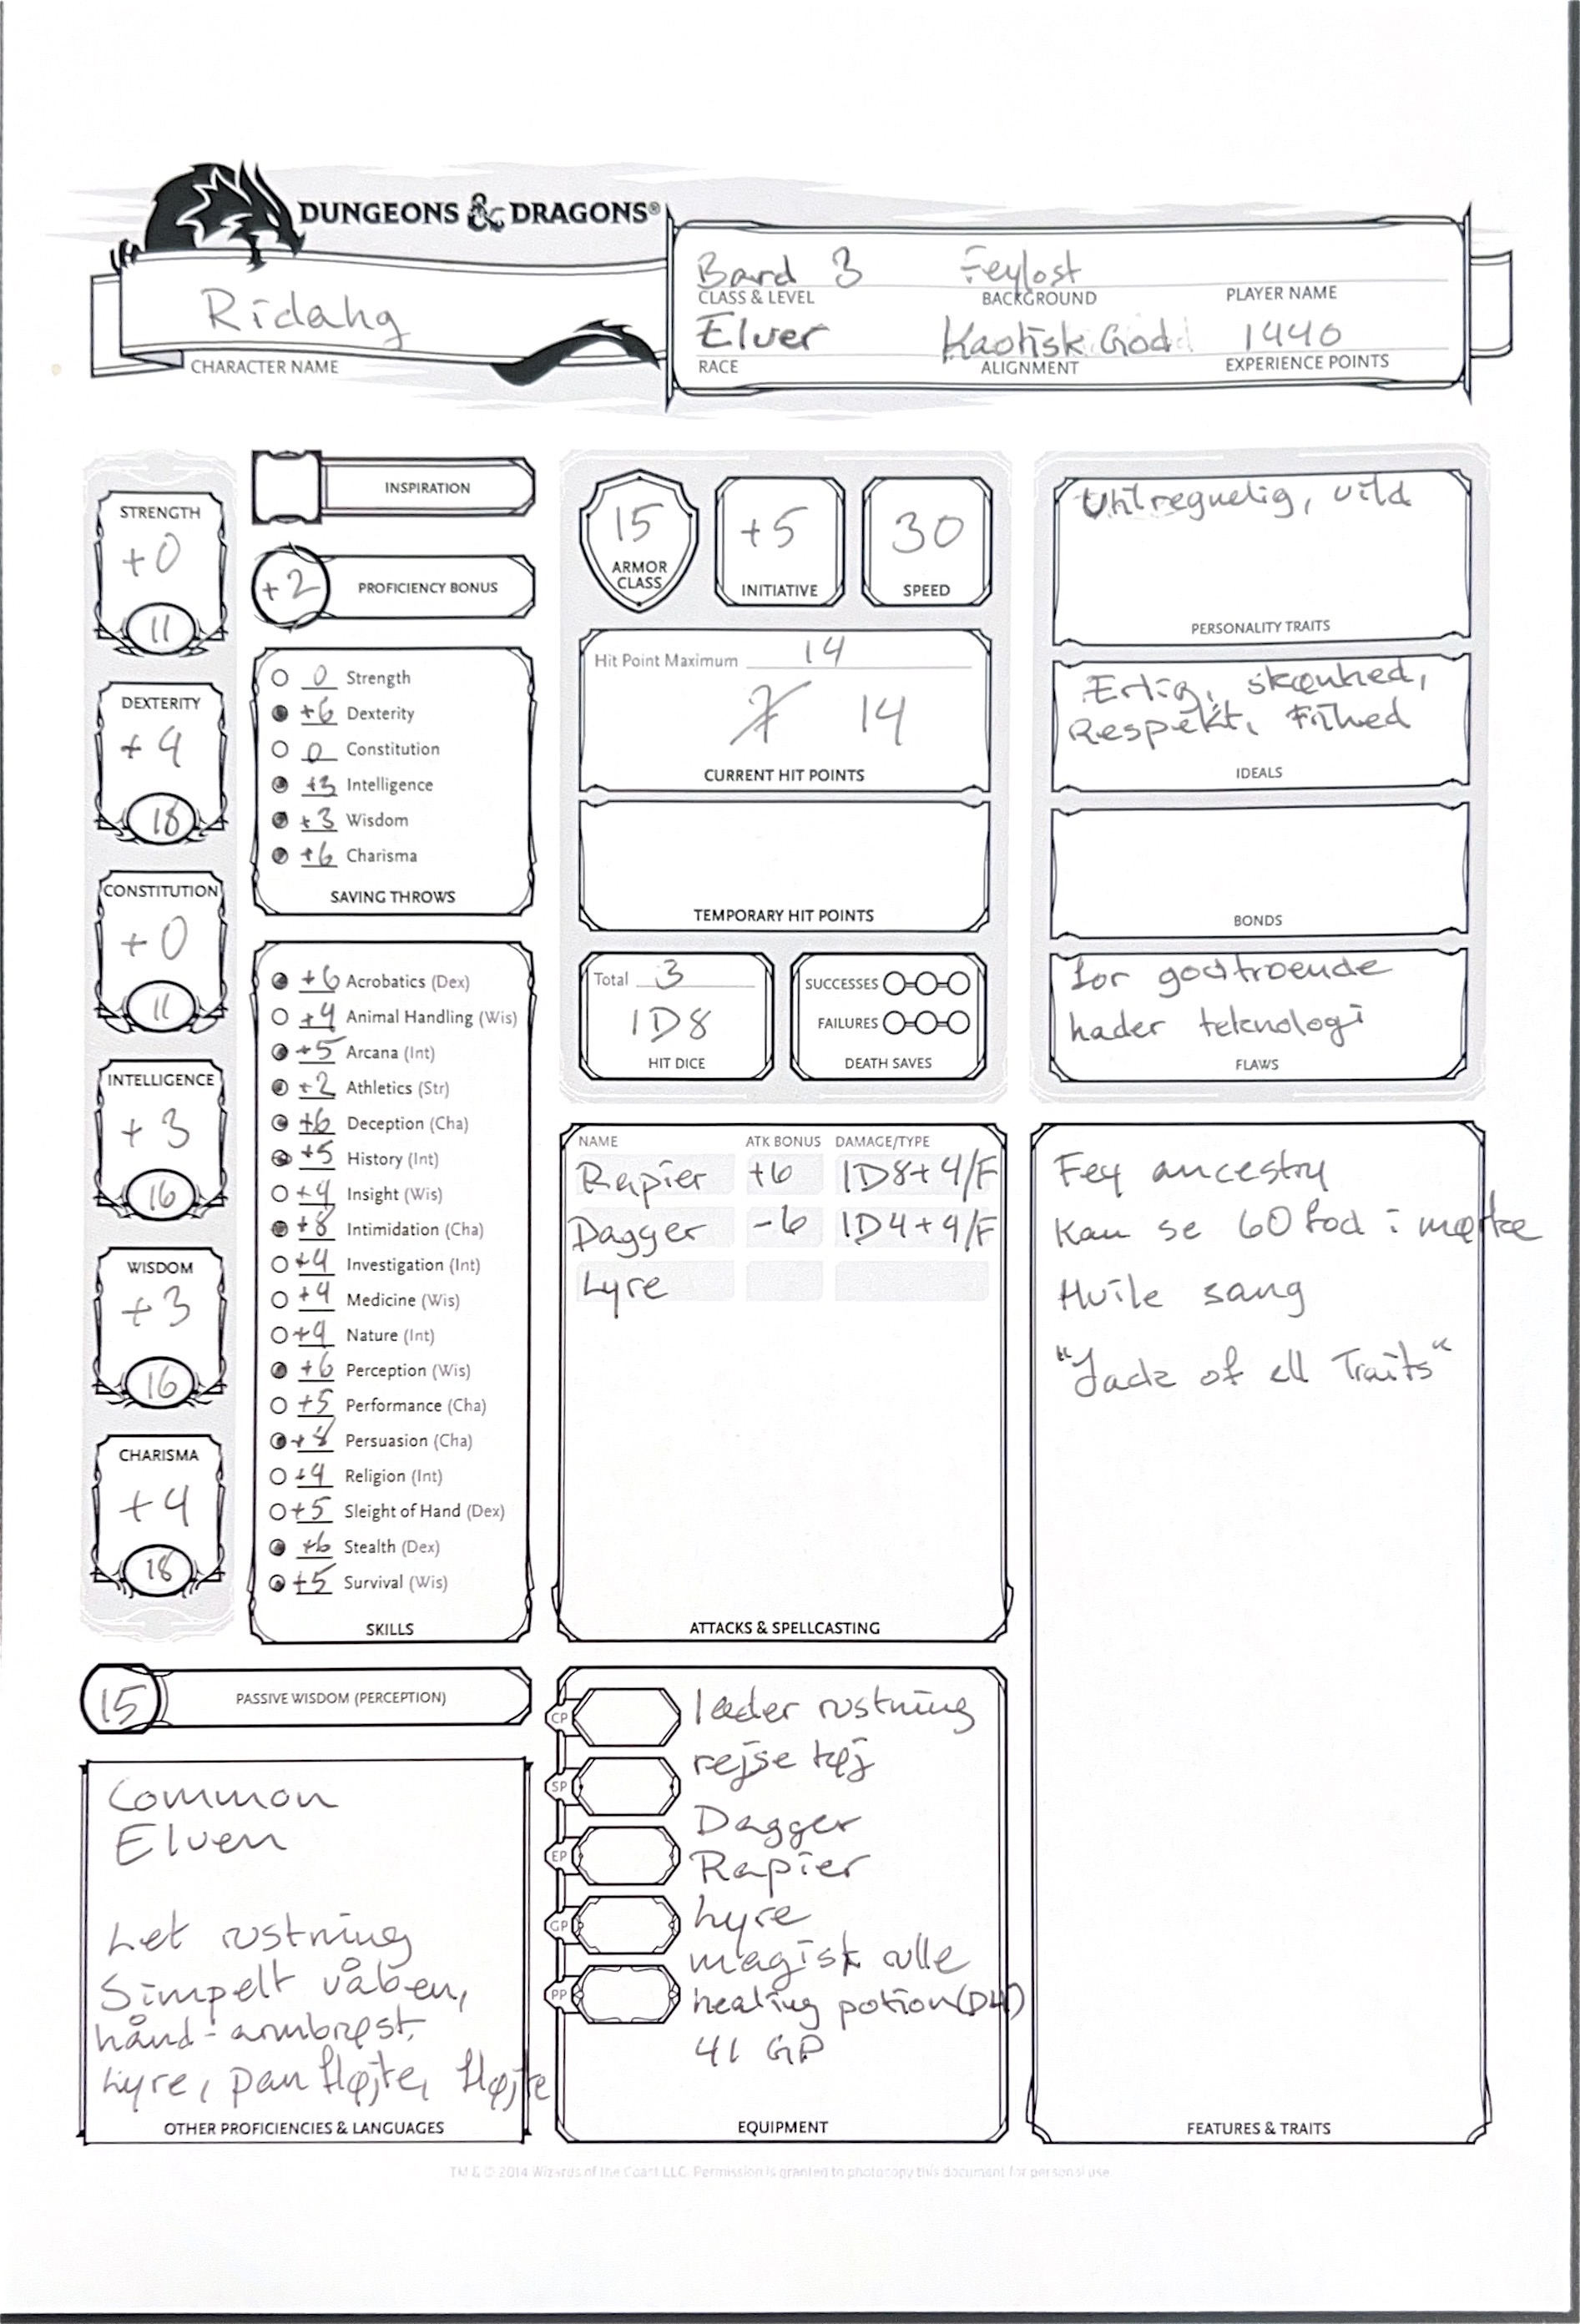 DUNGEONS & DRAGONS®
Ridahg
CHARACTER NAME
Bard 3 Feylost
CLASS & LEVEL BACKGROUND PLAYER NAME
Elver Kaotisk God 1440
RACE ALIGNMENT EXPERIENCE POINTS
STRENGTH
+0
11
DEXTERITY
+4
18
CONSTITUTION
+0
11
INTELLIGENCE
+3
16
WISDOM
+3
16
CHARISMA
+4
18
INSPIRATION
+2 PROFICIENCY BONUS
0 Strength
+6 Dexterity
0 Constitution
+3 Intelligence
+3 Wisdom
+6 Charisma
SAVING THROWS
+6 Acrobatics (Dex)
+4 Animal Handling (Wis)
+5 Arcana (Int)
+2 Athletics (Str)
+6 Deception (Cha)
+5 History (Int)
+4 Insight (Wis)
+8 Intimidation (Cha)
+4 Investigation (Int)
+4 Medicine (Wis)
+4 Nature (Int)
+6 Perception (Wis)
+5 Performance (Cha)
+8 Persuasion (Cha)
+4 Religion (Int)
+5 Sleight of Hand (Dex)
+6 Stealth (Dex)
+5 Survival (Wis)
SKILLS
15 PASSIVE WISDOM (PERCEPTION)
Common
Elven
Let rustning
Simpelt våben,
hånd-armbrøst,
Lyre, panfløjte, fløjte
OTHER PROFICIENCIES & LANGUAGES
15
ARMOR
CLASS
+5
INITIATIVE
30
SPEED
Hit Point Maximum 14
14
CURRENT HIT POINTS
TEMPORARY HIT POINTS
Total 3
1D8
HIT DICE
SUCCESSES
FAILURES
DEATH SAVES
NAME ATK BONUS DAMAGE/TYPE
Rapier +6 1D8+4/F
Dagger -6 1D4+4/F
Lyre
ATTACKS & SPELLCASTING
CP
SP
EP
GP
PP
læder rustning
rejse tøj
Dagger
Rapier
Lyre
magisk rulle
healing potion(D4)
41 GP
EQUIPMENT
Utilregnelig, vild
PERSONALITY TRAITS
Ærlig, skønhed,
Respekt, Frihed
IDEALS
BONDS
for godtroende
hader teknologi
FLAWS
Fey ancestry
Kan se 60 fod i mørke
Hvile sang
"Jack of all Traits"
FEATURES & TRAITS
TM & © 2014 Wizards of the Coast LLC. Permission is granted to photocopy this document for personal use